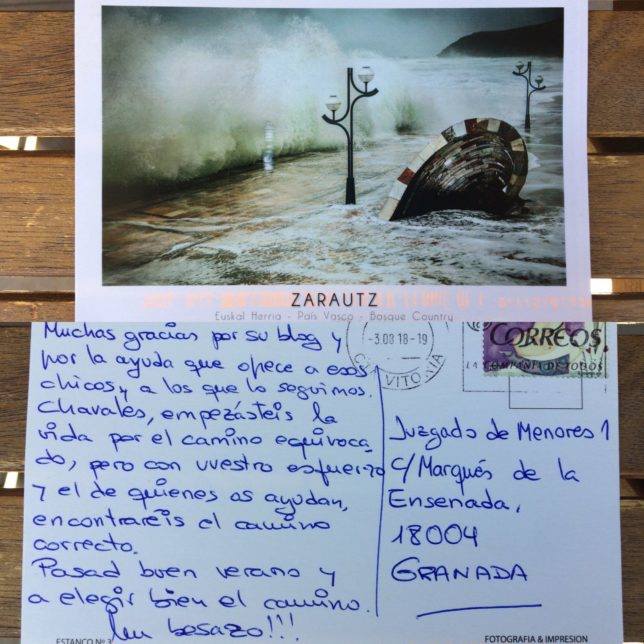 ZARAUTZ
Euskal Herria - País Vasco - Basque Country
Muchas gracias por su blog y
por la ayuda que ofrece a esos
chicos y a los que lo seguimos.
Chavales, empezásteis la
vida por el camino equivoca-
do, pero con vuestro esfuerzo
y el de quienes os ayudan,
encontraréis el camino
correcto.
Pasad buen verano y
a elegir bien el camino.
Un besazo!!!
ESTANCO Nº 3
-3.08 18-19
VITORIA
CORREOS
LA COMPAÑÍA DE TODOS
Juzgado de Menores 1
C/ Marqués de la
Ensenada,
18004
GRANADA
FOTOGRAFIA & IMPRESION